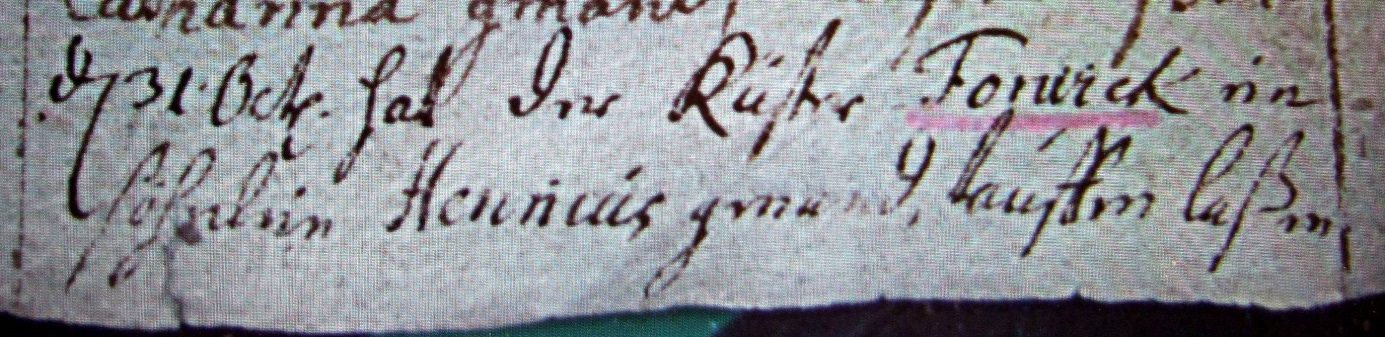 Catharina gmant,
d 31. Octr. hat der Küster Forwick ein
söhnlein Henricus gmand, tauffen laßen,